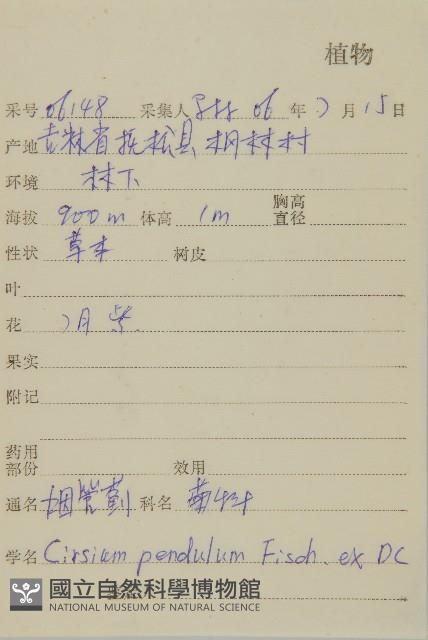 植物
采号 06148 采集人 06 年 7 月 15 日
产地 吉林省抚松县 村
环境 林下
海拔 900m 体高 1m 胸高直径
性状 草本 树皮
叶
花 7月 紫
果实
附记
药用部份 效用
通名 烟管蓟 科名 菊科
学名 Cirsium pendulum Fisch. ex DC
國立自然科學博物館
NATIONAL MUSEUM OF NATURAL SCIENCE